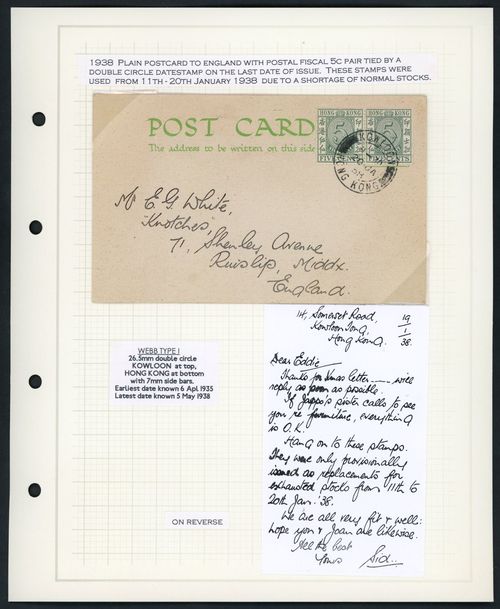 1938 PLAIN POSTCARD TO ENGLAND WITH POSTAL FISCAL 5c PAIR TIED BY A
DOUBLE CIRCLE DATESTAMP ON THE LAST DATE OF ISSUE. THESE STAMPS WERE
USED FROM 11TH - 20TH JANUARY 1938 DUE TO A SHORTAGE OF NORMAL STOCKS.
POST CARD
The address to be written on this side
HONG KONG HONG KONG
FIVE CENTS
KOWLOON
HONG KONG
Mr E. G. White,
"Knotches",
71, Shenley Avenue
Ruislip, Middx.
England.
WEBB TYPE I
26.5mm double circle
KOWLOON at top,
HONG KONG at bottom
with 7mm side bars.
Earliest date known 6 Apl 1935
Latest date known 5 May 1938
ON REVERSE
114, Somerset Road,
Kowloon Tong,
Hong Kong.
19
1
38.
Dear Eddie
Thanks for Xmas letter — will
reply as soon as possible.
If Jappo's sister calls to see
you re furniture, everything
is O.K.
Hang on to these stamps.
They were only provisionally
issued as replacements for
exhausted stocks from 11th to
20th Jan. '38.
We are all very fit & well:
hope you & Joan are likewise.
All the best
Yours Sid..